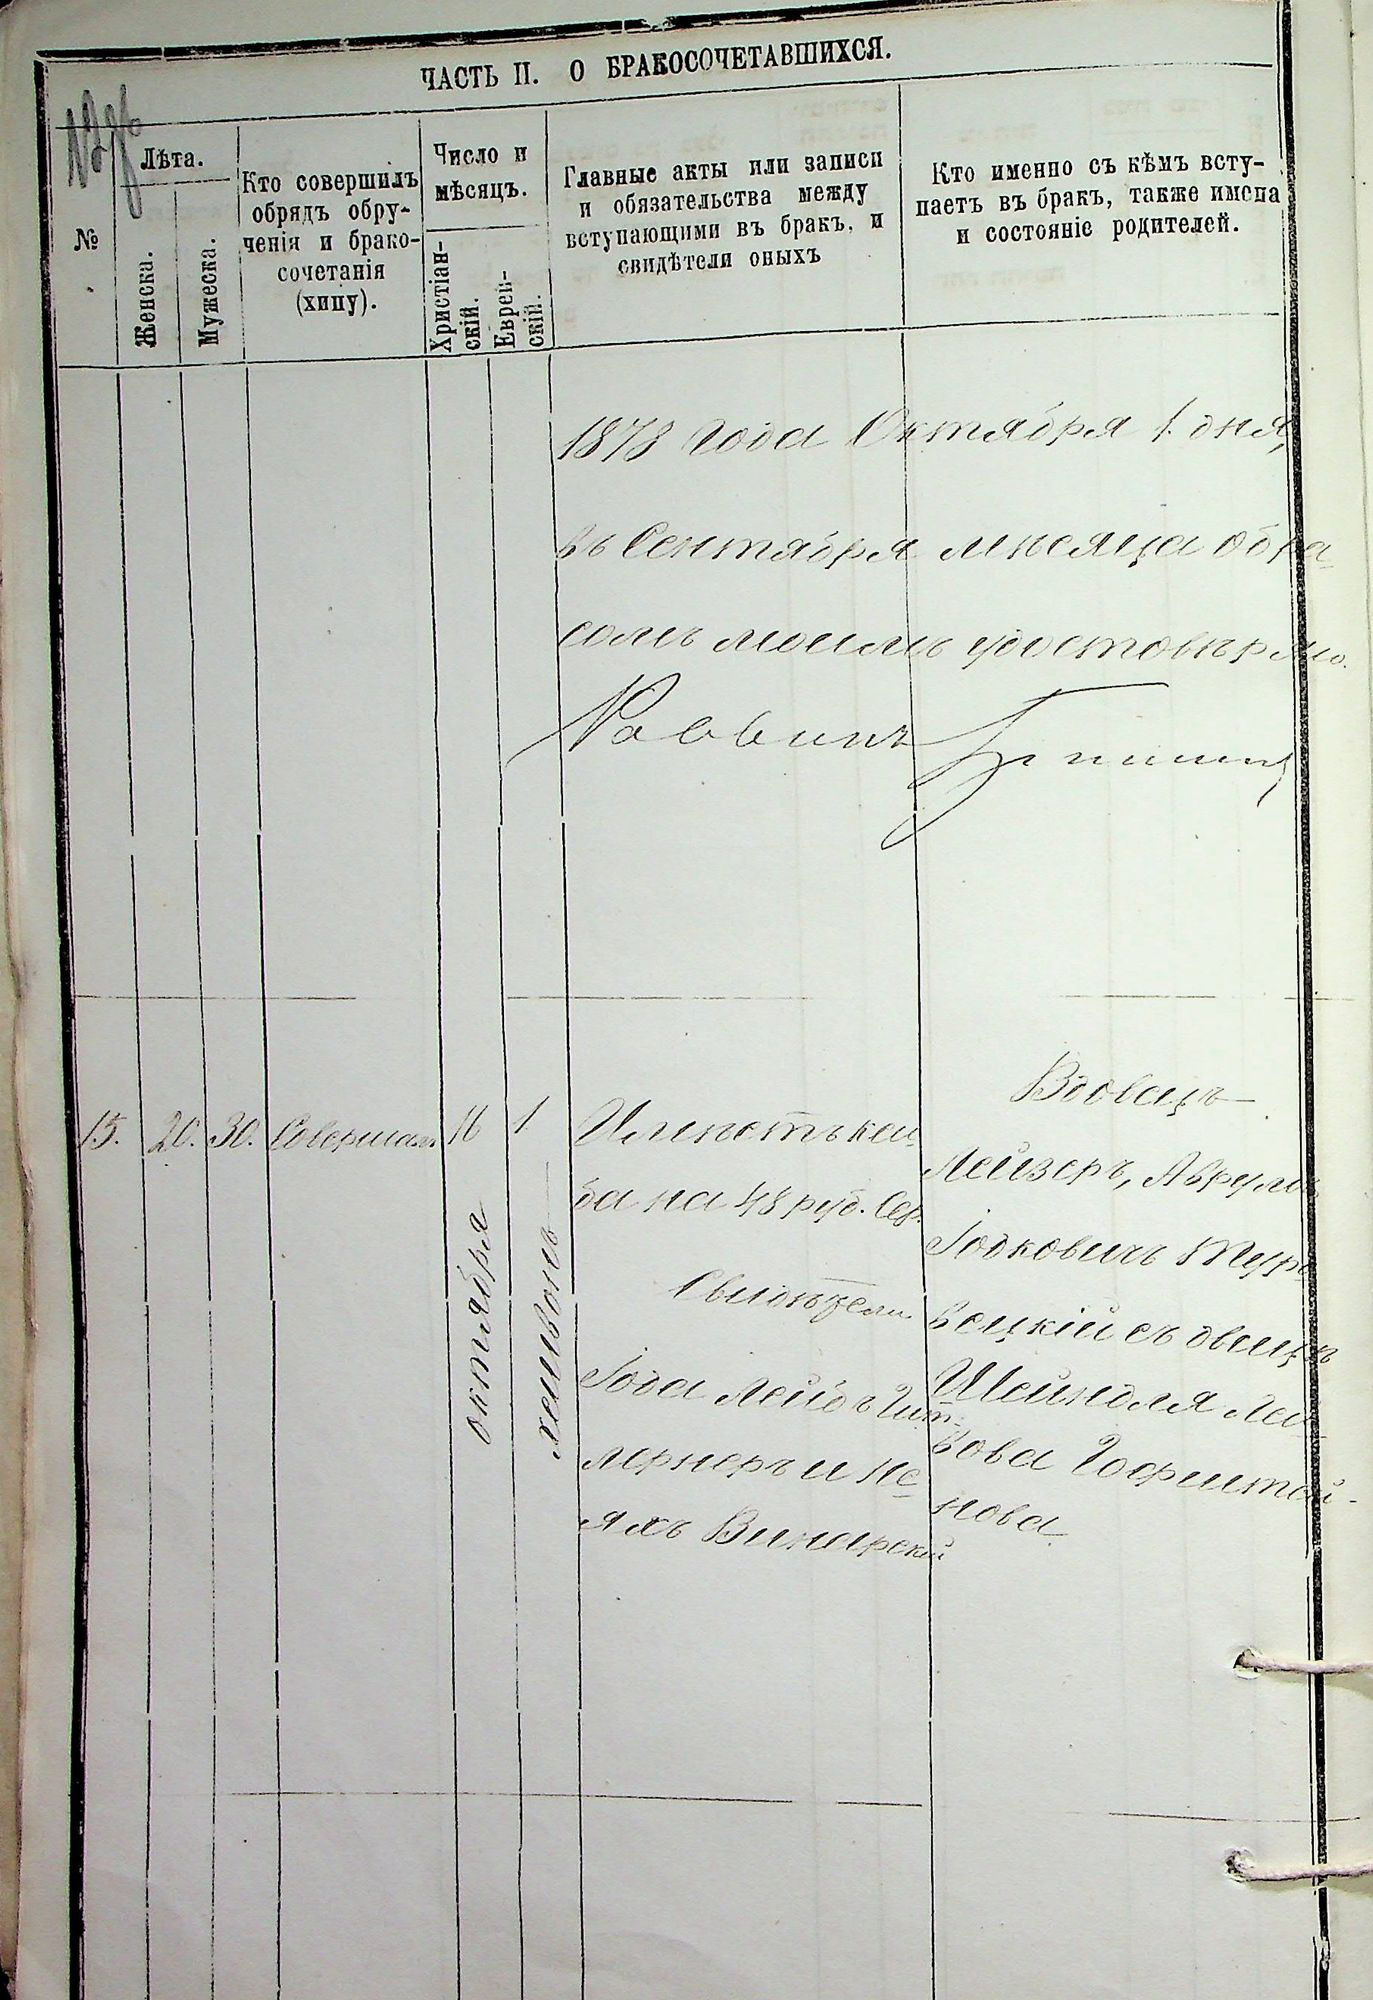 ЧАСТЬ II. О БРАКОСОЧЕТАВШИХСЯ.
№
Лѣта.
Женска.
Мужеска.
Кто совершилъ
обрядъ обру-
ченія и брако-
сочетанія
(хипу).
Число и
мѣсяцъ.
Христіан-
скій.
Еврей-
скій.
Главные акты или записи
и обязательства между
вступающими въ бракъ, и
свидѣтели оныхъ
Кто именно съ кѣмъ всту-
паетъ въ бракъ, также имена
и состояніе родителей.
1873 Года Октября 1. дня,
въ Сентября мѣсяца бра-
комъ моимъ
Раввинъ
15.
20.
30.
Совершалъ
16
октября
1
хешвонъ
на 48 руб. Сер.
Свидѣтели
Іода Лейбъ
и
Винарскій
Вдовецъ
Лейзеръ, Аврумъ
Іовковичъ
вецкій съ двицѣ
Шейндля Лей-
бова Гофштей-
нова